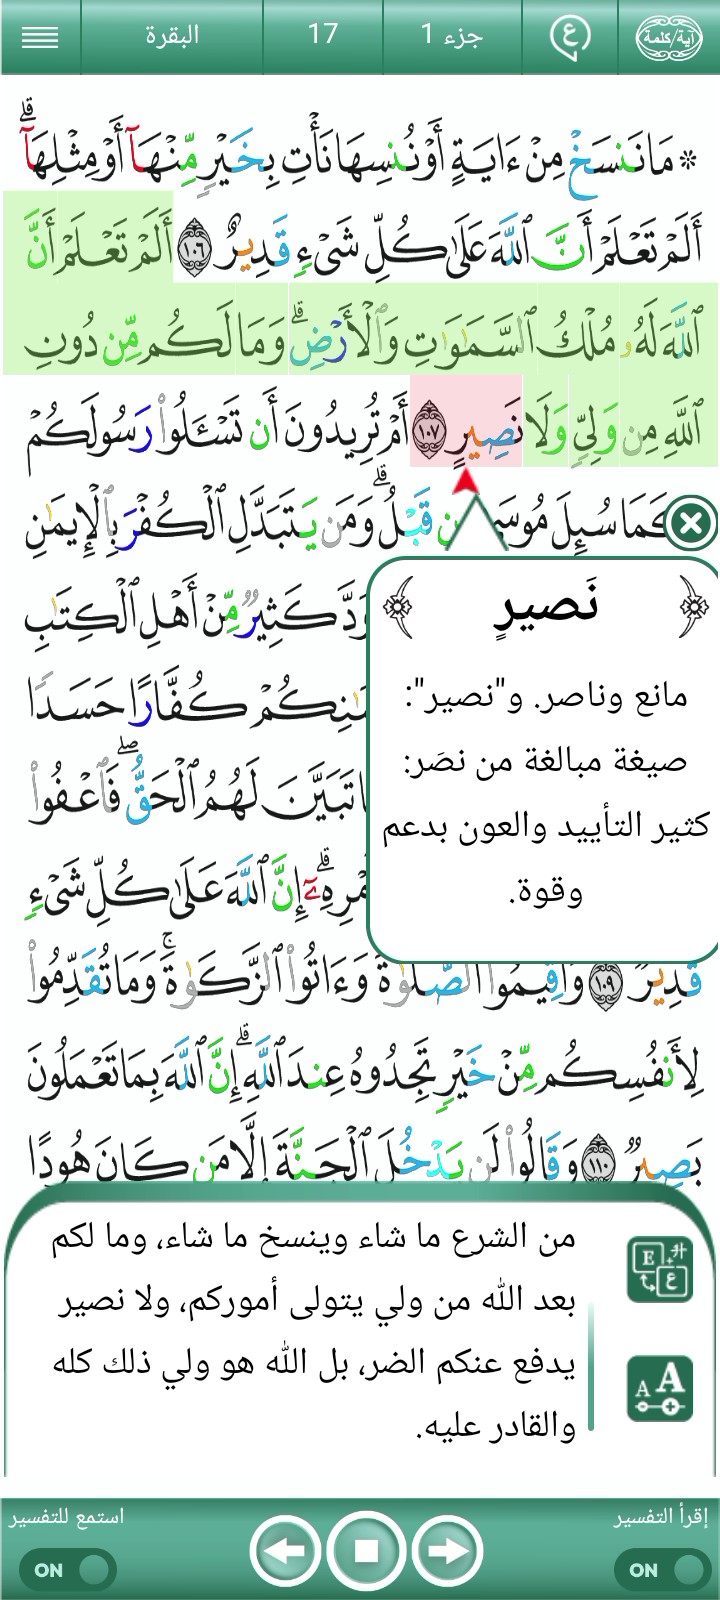 آية/كلمة
ع
جزء 1
17
البقرة
۞ مَا نَنسَخْ مِنْ ءَايَةٍ أَوْ نُنسِهَا نَأْتِ بِخَيْرٍ مِّنْهَآ أَوْ مِثْلِهَآ ۗ
أَلَمْ تَعْلَمْ أَنَّ ٱللَّهَ عَلَىٰ كُلِّ شَىْءٍ قَدِيرٌ ١٠٦ أَلَمْ تَعْلَمْ أَنَّ
ٱللَّهَ لَهُۥ مُلْكُ ٱلسَّمَـٰوَٰتِ وَٱلْأَرْضِ ۗ وَمَا لَكُم مِّن دُونِ
ٱللَّهِ مِن وَلِىٍّ وَلَا نَصِيرٍ ١٠٧ أَمْ تُرِيدُونَ أَن تَسْـَٔلُوا۟ رَسُولَكُمْ
كَمَا سُئِلَ مُوسَىٰ مِن قَبْلُ ۗ وَمَن يَتَبَدَّلِ ٱلْكُفْرَ بِٱلْإِيمَـٰنِ
وَدَّ كَثِيرٌ مِّنْ أَهْلِ ٱلْكِتَـٰبِ
كُفَّارًا حَسَدًا
تَبَيَّنَ لَهُمُ ٱلْحَقُّ ۖ فَٱعْفُوا۟
إِنَّ ٱللَّهَ عَلَىٰ كُلِّ شَىْءٍ
قَدِيرٌ ١٠٩ وَأَقِيمُوا۟ ٱلصَّلَوٰةَ وَءَاتُوا۟ ٱلزَّكَوٰةَ ۚ وَمَا تُقَدِّمُوا۟
لِأَنفُسِكُم مِّنْ خَيْرٍ تَجِدُوهُ عِندَ ٱللَّهِ ۗ إِنَّ ٱللَّهَ بِمَا تَعْمَلُونَ
بَصِيرٌ ١١٠ وَقَالُوا۟ لَن يَدْخُلَ ٱلْجَنَّةَ إِلَّا مَن كَانَ هُودًا
نَصيرٍ
مانع وناصر. و"نصير":
صيغة مبالغة من نصَر:
كثير التأييد والعون بدعم
وقوة.
من الشرع ما شاء وينسخ ما شاء، وما لكم
بعد الله من ولي يتولى أموركم، ولا نصير
يدفع عنكم الضر، بل الله هو ولي ذلك كله
والقادر عليه.
إقرأ التفسير
ON
استمع للتفسير
ON